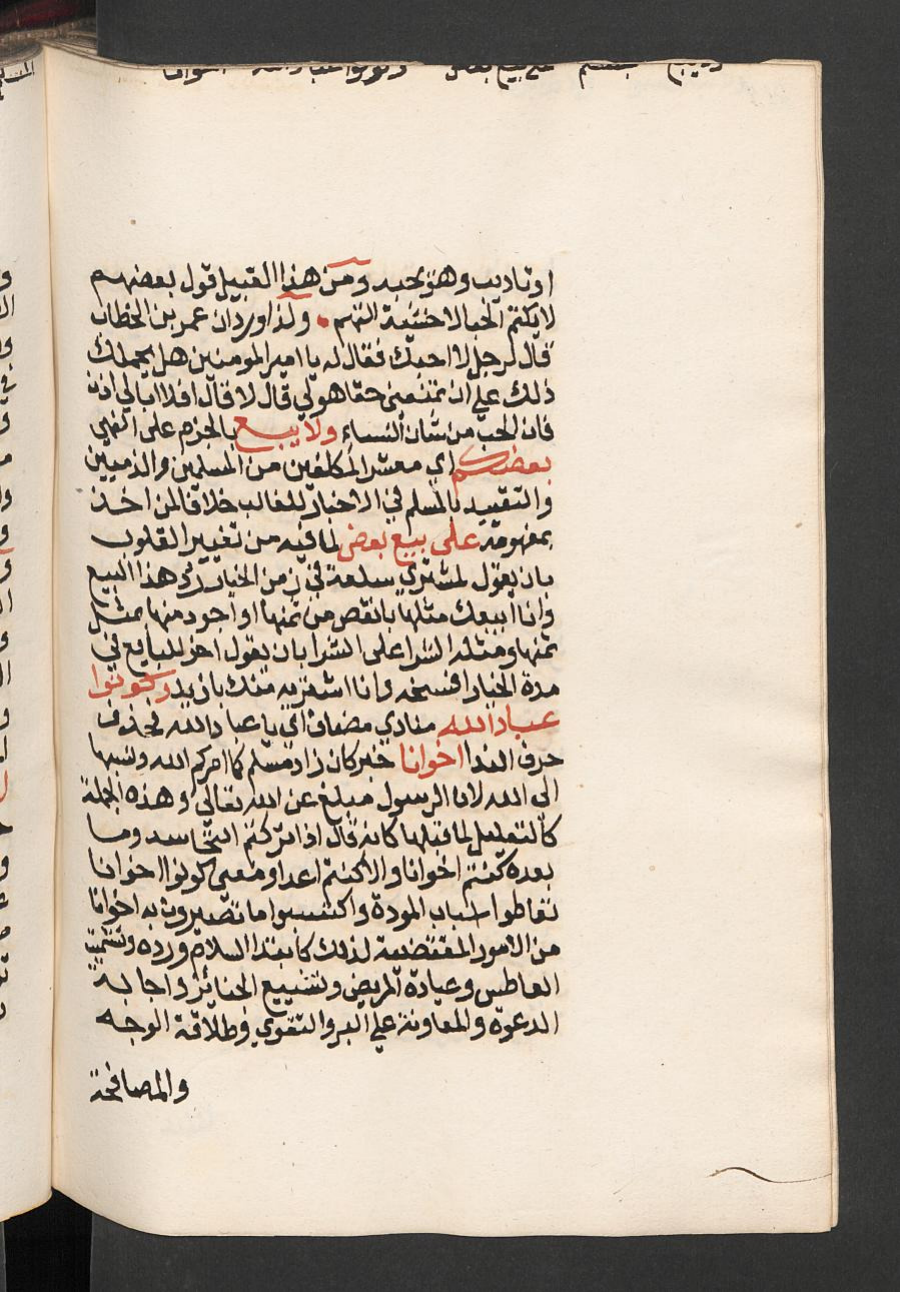 او تاديب وهو يحبه ومن هذا القبيل قول بعضهم
لا يكتم الحب الا خشية التهم ولذا ورد ان عمر بن الخطاب
قال لرجل لا احبك فقال له يا امير المومنين هل يحملك
ذلك على ان تمنعني حقا هو لي قال لا قال افلا ابالي اذن
فان الحب من شان النساء ولا يبع بالجزم على النهي
بعضكم اي معشر المكلفين من المسلمين والذميين
والتقييد بالمسلم في الاخبار للغالب خلافا لمن اخذ
بمفهومه على بيع بعض لما فيه من تغيير القلوب
بان يقول لمشتري سلعة في زمن الخيار رد هذا البيع
وانا ابيعك مثلها بانقص من ثمنها او اجود منها بمثل
ثمنها ومثله الشرا على الشرا بان يقول اخر للبايع في
مدة الخيار افسخه وانا اشتريه منك بازيد وكونوا
عباد الله منادي مضاف اي يا عباد الله بحذف
حرف الندا اخوانا خبر كان زاد مسلم كما امركم الله ونسبها
الى الله لان الرسول مبلغ عن الله تعالى وهذه الجملة
كالتعليل لما قبلها كانه قال اذا تركتم التحاسد وما
بعده كنتم اخوانا والا كنتم اعدا ومعنى كونوا اخوانا
تعاطوا اسباب المودة واكتسبوا ما تصيرون به اخوانا
من الامور المقتضية لذلك كابتدا السلام ورده وتشميت
العاطس وعيادة المريض وتشييع الجنائز واجابة
الدعوة والمعاونة على البر والتقوي وطلاقة الوجه
والمصافحة